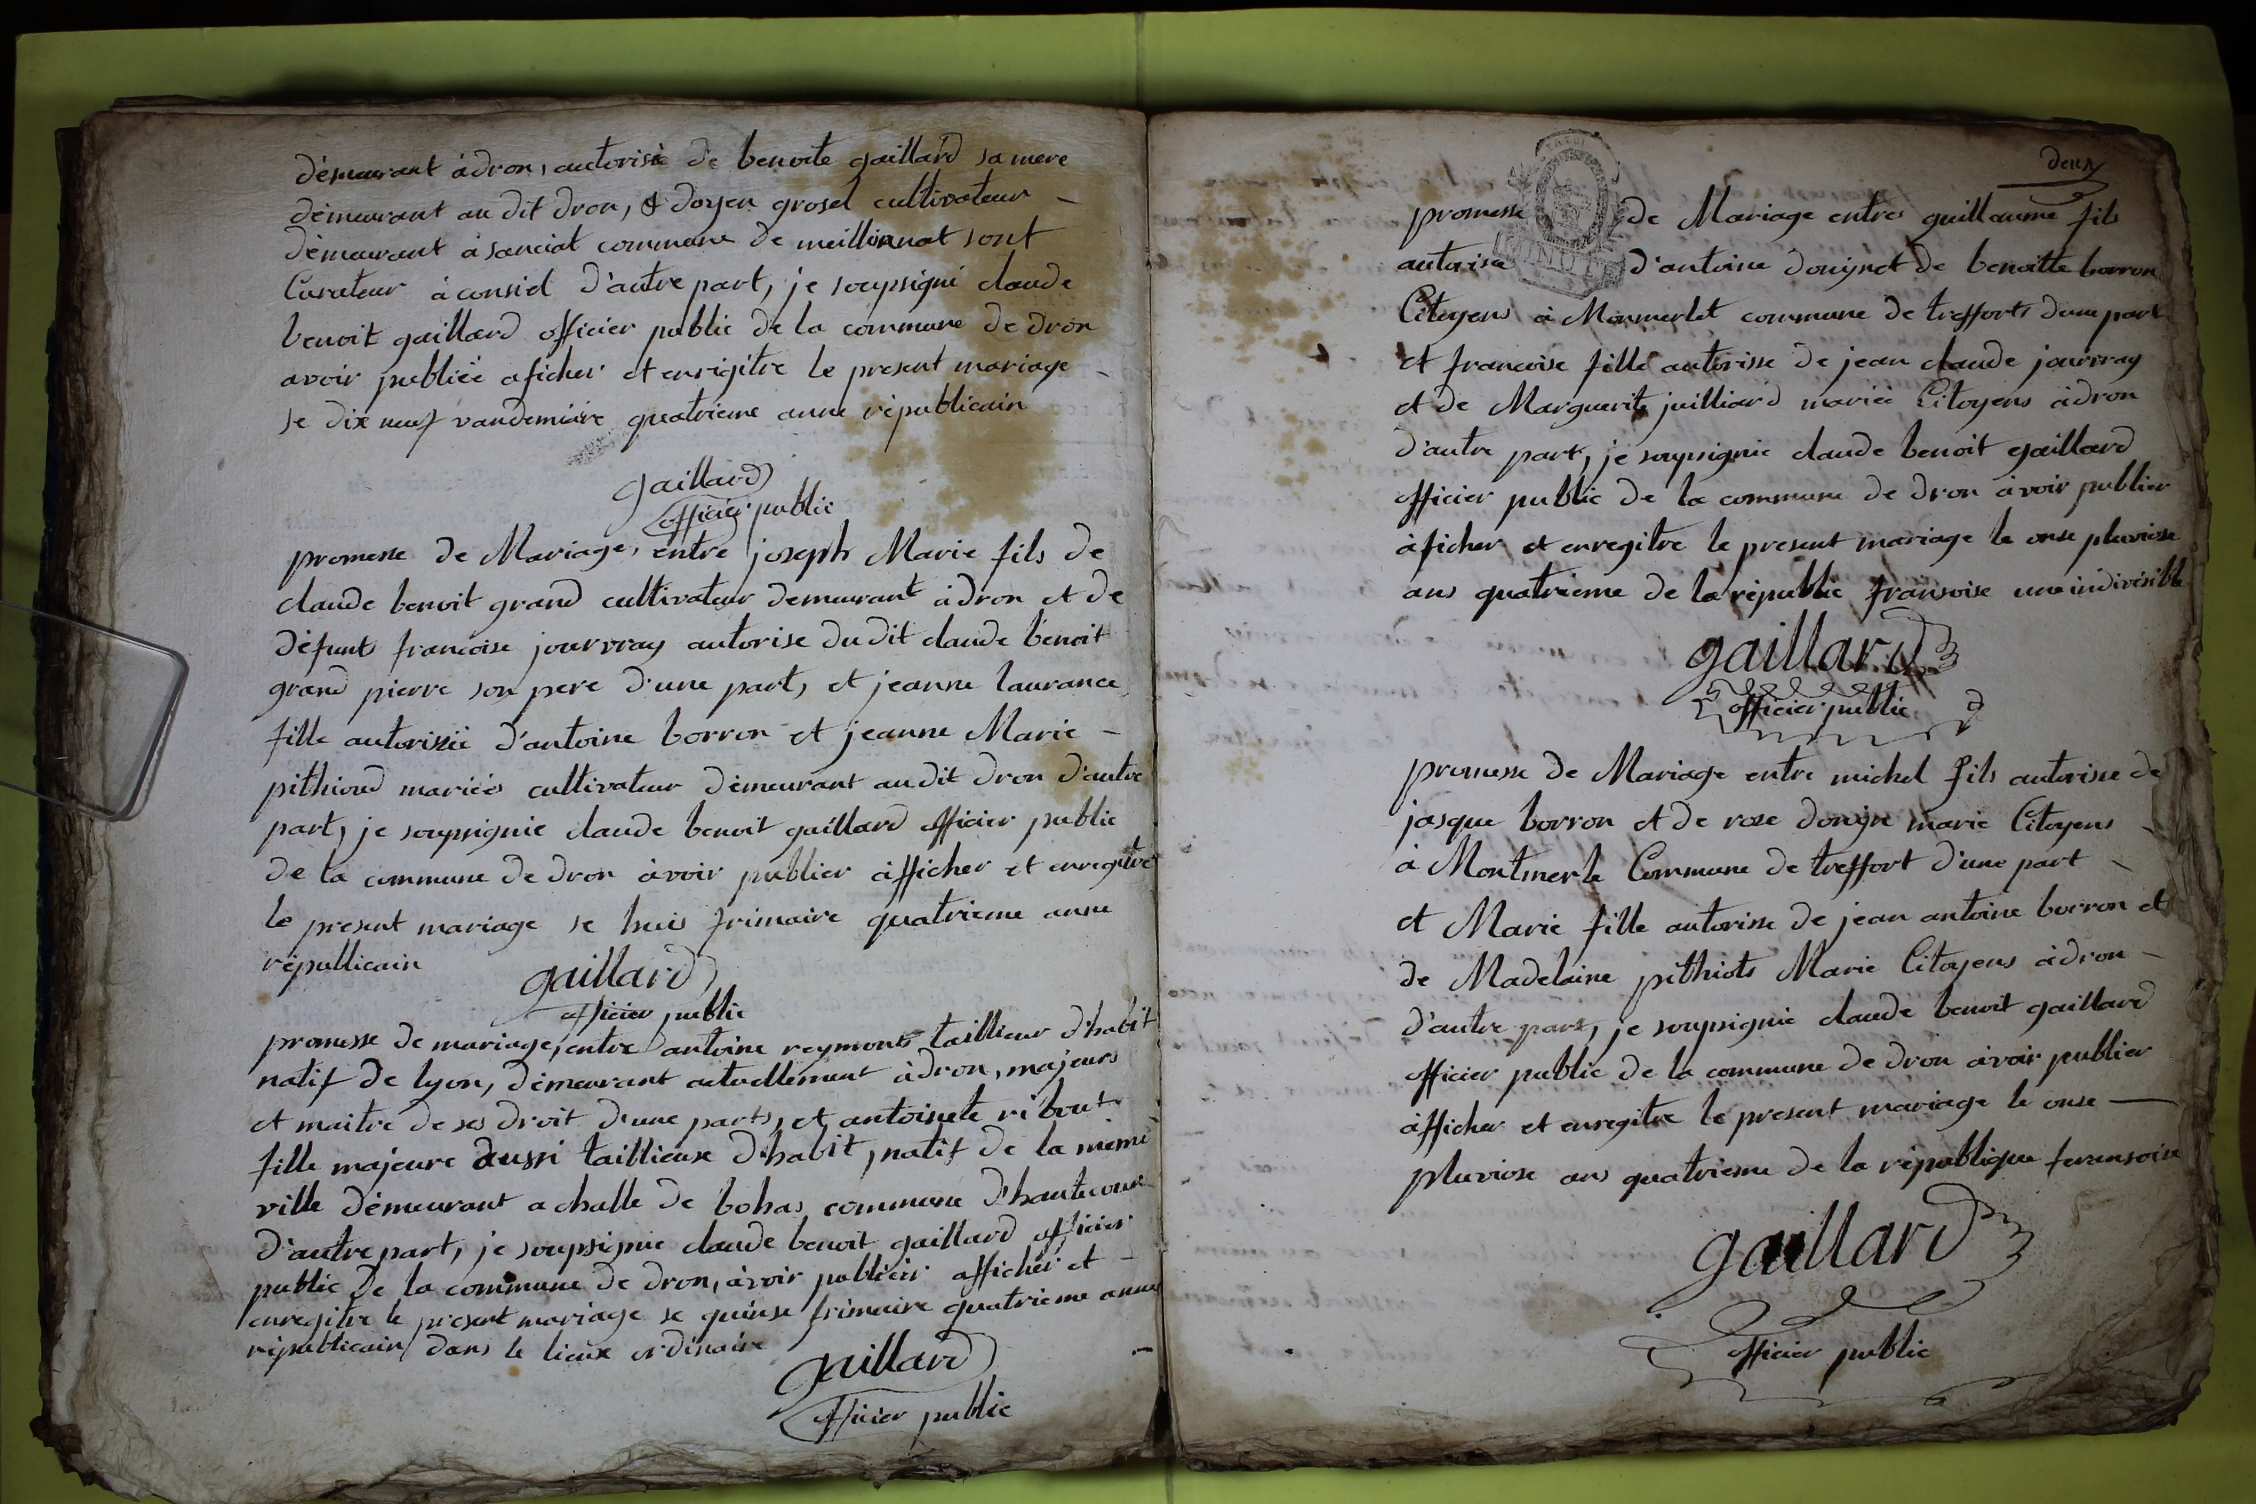 démeurant àdron, autorisé de benoite gaillard sa mere
démeurant au dit dron, & doyen grosel cultivateur
démeurant à sanciat commune de meillionnat sont
Curateur à consiel d'autre part, je soupsigné claude
benoit gaillard officier public de la commune de dron
avoir publiée aficher et enrigitre le present mariage
se dix neuf vandemiaire quatrieme anne républicain
gaillard
officier public
promesse de Mariage, entre joseph Marie fils de
claude benoit grand cultivateur demeurant àdron et de
défunts francoise jourvray autorise du dit claude benoit
grand pierre son pere d'une part, et jeanne laurance
fille autorisée d'antoine borron et jeanne Marie
pithioud mariées cultivateur démeurant audit dron d'autre
part, je soupsignie claude benoit gaillard officier public
de la commune de dron àvoir publier àfficher et enregitre
le present mariage se huis frimaire quatrieme anne
républicain
gaillard
officier public
promesse de mariage, entre antoine reymont taillieur d'habit
natif de lyon, démeurant actuellement àdron, majeurs
et maitre de ses droit d'une parts, et antoinete ribout
fille majeure aussi taillieuse d'habit, natif de la mème
ville démeurant a challe de bohas commune d'hautecour
d'autre part, je soupsignie claude benoit gaillard officier
public de la commune de dron, àvoir publiéir afficher et
enregitre le present mariage se quinse frimaire quatrieme anne
républicain dans le lieux ordinaire
gaillard
officier public
deux
promesse de Mariage entres guillaume fils
autorisé d'antoine douignet de benoitte borron
MINUTE
Citoyens à Monmerlet commune de trefforts dune part
et francoise fille autorisse de jean claude jourvray
et de Marguerite juilliard mariée Citoyens àdron
d'autre part, je soupsignie claude benoit gaillard
officier public de la commune de dron àvoir publier
àficher et enregitre le present mariage le onse pluviosse
ans quatrieme de la républic fransoise une indivisible
gaillard
officier public
promesse de Mariage entre michel fils autorisse de
jasque borron et de rose donign marie Citoyens
à Montmerle Commune de treffort d'une part
et Marie fille autorisse de jean antoine borron et
de Madelaine pithiots Marie Citoyens àdron
d'autre part, je soupsignie claude benoit gaillard
officier public de la commune de dron àvoir publier
àfficher et enregitre le present mariage le onse
pluviose ans quatriesme de la république
gaillard
officier public